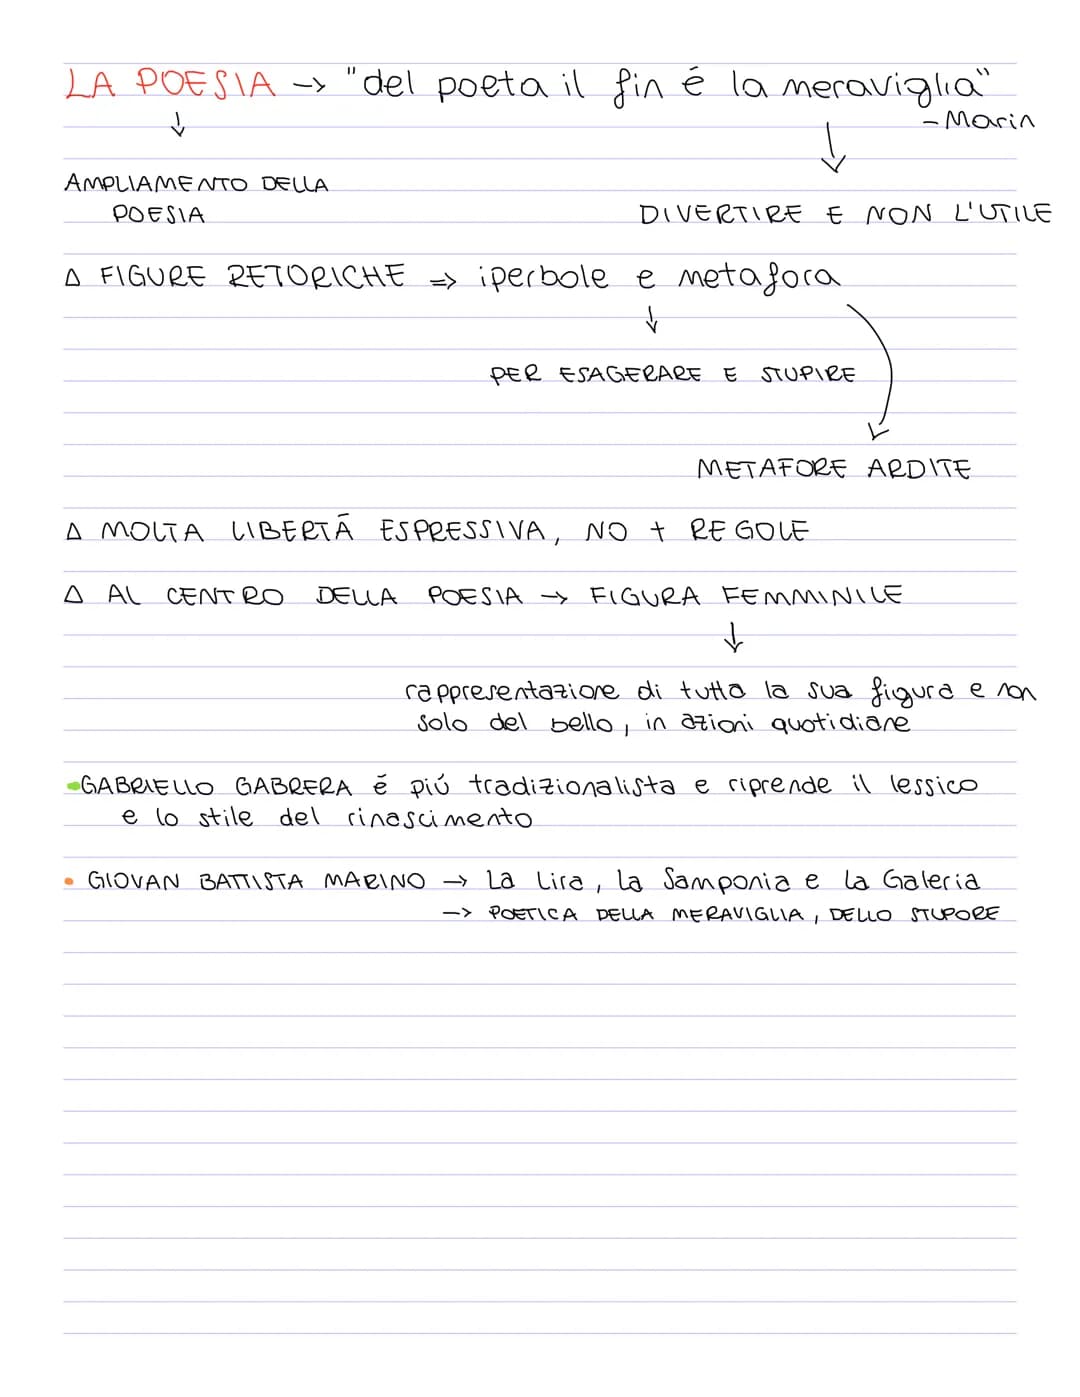 LA POESIA -> "del poeta il fin é la meraviglia"
- Marin
↓ ↓
AMPLIAMENTO DELLA
POESIA
DIVERTIRE E NON L'UTILE
Δ FIGURE RETORICHE => iperbole e metafora
↓
PER ESAGERARE E STUPIRE
METAFORE ARDITE
Δ MOLTA LIBERTÁ ESPRESSIVA, NO + REGOLE
Δ AL CENTRO DELLA POESIA → FIGURA FEMMINILE
↓
rappresentazione di tutta la sua figura e non
solo del bello, in azioni quotidiane
- GABRIELLO GABRERA é piú tradizionalista e riprende il lessico
e lo stile del rinascimento
• GIOVAN BATTISTA MARINO → La Lira, La Samponia e La Galeria
-> POETICA DELLA MERAVIGLIA, DELLO STUPORE